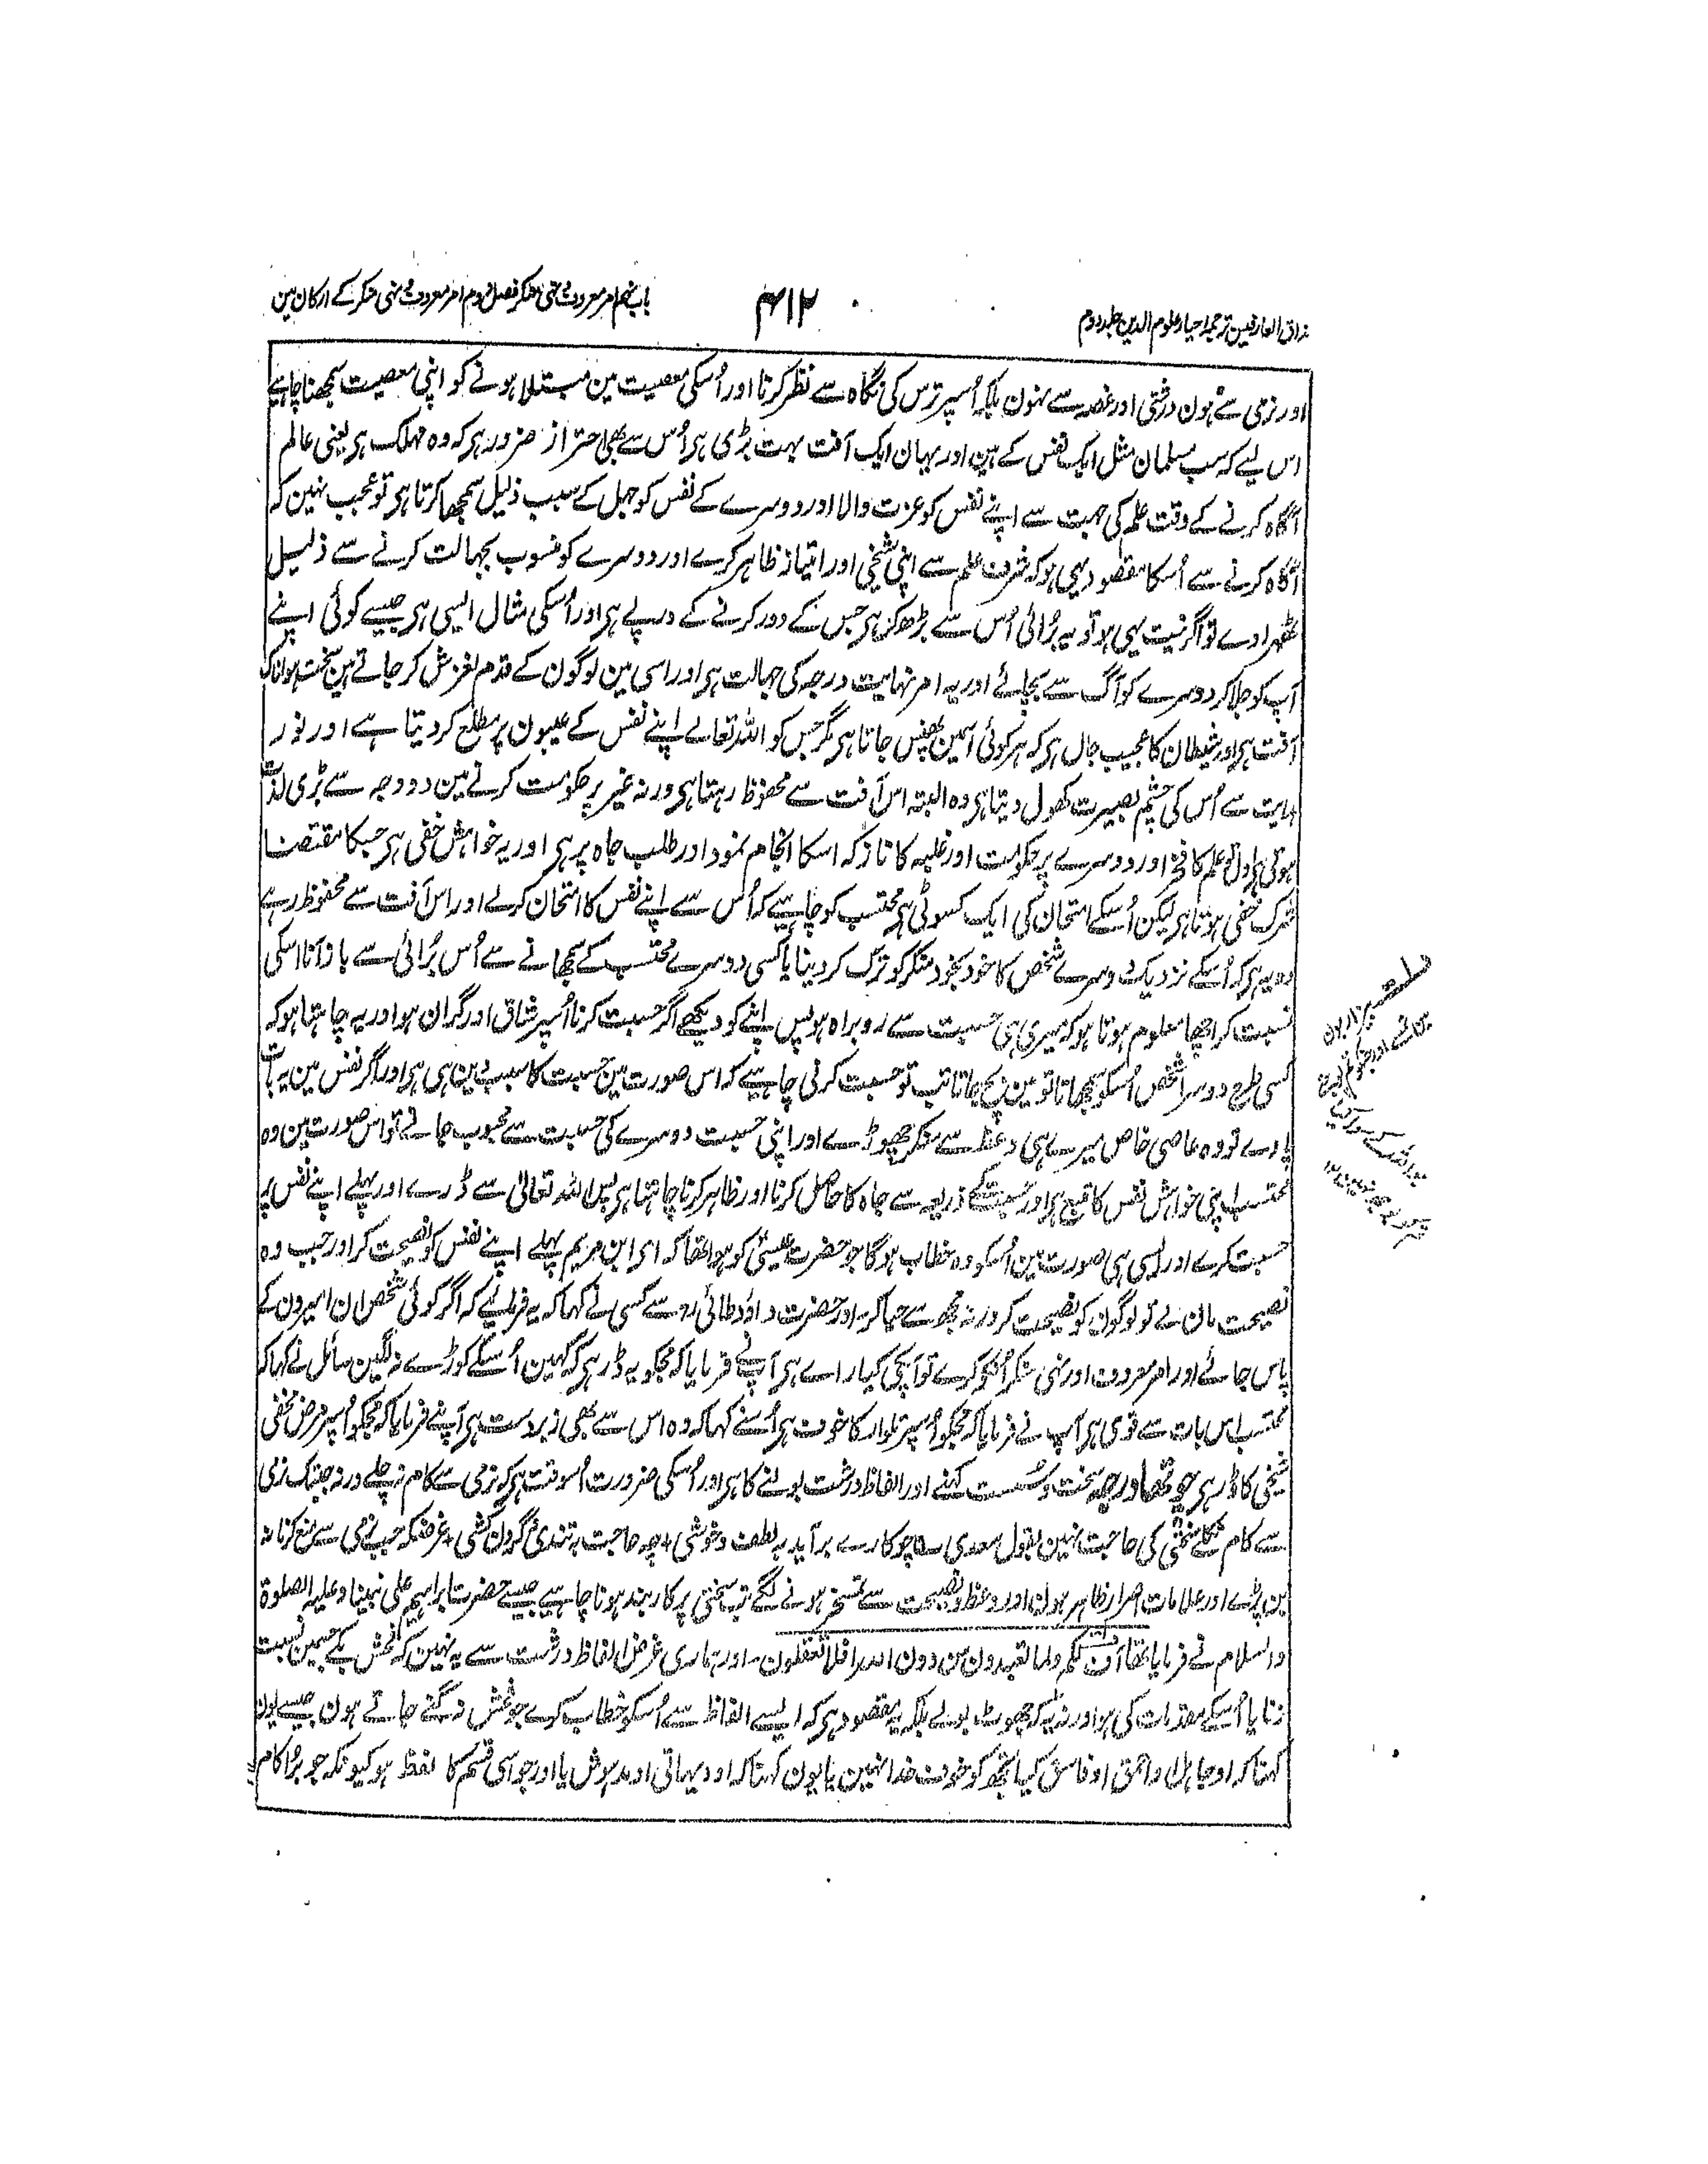 مذاق العارفین ترجمہ احیاء علوم الدین جلد دوم
۴۱۲
باب نہم امر معروف و نہی منکر فصل دوم امر معروف و نہی منکر کے ارکان مین
اور نرمی سے ہون درشتی اور غصہ سے نہون بلکہ اُسپر ترس کی نگاہ سے نظر کرنا اور اُسکی معصیت مین مبتلا ہونے کو اپنی معصیت سمجھنا چاہیے
اس لیے کہ سب مسلمان مثل ایک نفس کے ہین اور یہان ایک آفت بہت بڑی ہر اُس سے بھی احتراز ضرور ہر کہ وہ مہلک ہر یعنی عالم
آگاہ کرنے کے وقت علم کی جہت سے اپنے نفس کو عزت والا اور دوسرے کے نفس کو جہل کے سبب ذلیل سمجھا کرتا ہر تو عجب نہین کہ
آگاہ کرنے سے اُسکا مقصود یہی ہو کہ شرف علم سے اپنی شیخی اور امتیاز ظاہر کرے اور دوسرے کو منسوب بجہالت کرنے سے ذلیل
ٹھہراوے تو اگر نیت یہی ہو تو یہ بُرائی اُس سے بڑھکر ہر جس کے دور کرنے کے درپے ہر اور اُسکی مثال ایسی ہر جیسے کوئی اپنے
آپ کو جلا کر دوسرے کو آگ سے بچائے اور یہ امر نہایت درجہ کی جہالت ہر اور اسی مین لوگون کے قدم لغزش کر جاتے ہین سخت ہولناک
آفت ہر اور شیطان کا عجیب جال ہر کہ ہر کوئی اسمین پھنس جاتا ہر مگر جس کو اللہ تعالے اپنے نفس کے عیبون پر مطلع کر دیتا ہے اور نور
ہدایت سے اُس کی چشم بصیرت کھول دیتا ہر وہ البتہ اس آفت سے محفوظ رہتا ہر ورنہ غیر پر حکومت کرنے مین دو وجہ سے بڑی لذت
ہوتی ہر اول تو علم کا فخر اور دوسرے پر حکومت اور غلبہ کا ناز کہ اسکا انجام نمود اور طلب جاہ پر ہر اور یہ خواہش خفی ہر جسکا مقتضا
شرک خفی ہوتا ہر لیکن اُسکے امتحان کی ایک کسوٹی ہر محتسب کو چاہیے کہ اُس سے اپنے نفس کا امتحان کرلے اور اس آفت سے محفوظ رہے
وہ یہ ہر کہ اُسکے نزدیک دوسرے شخص کا خود بخود منکر کو ترک کر دینا یا کسی دوسرے محتسب کے سمجھانے سے اُس بُرائی سے باز آنا اسکی
نسبت کر اچھا معلوم ہوتا ہو کہ میری ہی حسبت سے روبراہ ہو پس اپنے کو دیکھے اگر حسبت کرنا اُسپر شاق اور گران ہو اور یہ چاہتا ہو کہ
کسی طرح دوسرا شخص اُسکو سمجھاتا تو مین بچ جاتا تب تو حسبت کرنی چاہیے کہ اس صورت مین حسبت کا سبب دین ہی ہر اور اگر نفس مین یہ بات
پاوے تو وہ عاصی خاص میرے ہی وعظ سے منکر چھوڑے اور اپنی حسبت دوسرے کی حسبت سے محبوب جانے تو اس صورت مین وہ
محتسب اپنی خواہش نفس کا متبع ہر اور حسبت کے ذریعہ سے جاہ کا حاصل کرنا اور ظاہر کرنا چاہتا ہر پس اللہ تعالیٰ سے ڈرے اور پہلے اپنے نفس پر
حسبت کرے اور ایسی ہی صورت مین اُسکو وہ خطاب ہوگا جو حضرت عیسیٰ کو ہوا تھا کہ ای ابن مریم پہلے اپنے نفس کو نصیحت کر اور جب وہ
نصیحت مان لے تو لوگون کو نصیحت کر ورنہ مجھ سے حیا کر۔ اور حضرت داؤد طائی رہ سے کسی نے کہا کہ یہ فرمایے کہ اگر کوئی شخص ان امیرون کے
پاس جائے اور امر معروف اور نہی منکر اُنکو کرے تو آپکی کیا راے ہر آپ نے فرمایا کہ مجکو یہ ڈر ہر کہ کہین اُسکے کوڑے نہ لگین سائل نے کہا کہ
محتسب اس بات سے قوی ہر آپ نے فرمایا کہ مجکو اُسپر تلوار کا خوف ہر اُسنے کہا کہ وہ اس سے بھی زبردست ہر آپنے فرمایا کہ مجکو اُسپر مرض مخفی
شیخی کا ڈر ہر چوتھا درجہ سخت و سست کہنے اور الفاظ درشت بولنے کا ہر اور اُسکی ضرورت اُسوقت ہر کہ نرمی سے کام نہ چلے ورنہ جبتک نرمی
سے کام نکلے سختی کی حاجت نہین بقول سعدی ے چو کارے برآید بہ لطف و خوشی + چہ حاجت بہ تندی و گردن کشی + غرضکہ جب نرمی سے منع کرنا نہ
بن پڑے اور علامات اصرار ظاہر ہون اور وعظ و نصیحت سے تمسخر ہونے لگے تب سختی پر کاربند ہونا چاہیے جیسے حضرت ابراہیم علی نبینا وعلیہ الصلوۃ
والسلام نے فرمایا تھا اُف لکم ولما تعبدون من دون اللہ افلا تعقلون۔ اور ہماری غرض الفاظ درشت سے یہ نہین کہ فحش بکے جسمین نسبت
زنا یا اُسکے مقدمات کی ہو اور نہ یہ کہ جھوٹ بولے بلکہ یہ مقصود ہر کہ ایسے الفاظ سے اُسکو خطاب کرے جو فحش نہ گنے جاتے ہون جیسے یون
کہنا کہ او جاہل او احمق او فاسق کیا تجھ کو خوف خدا نہین یا یون کہنا کہ او دیہاتی او مدہوش یا اور جو اسی قسم کا لفظ ہو کیونکہ جو بُرا کام